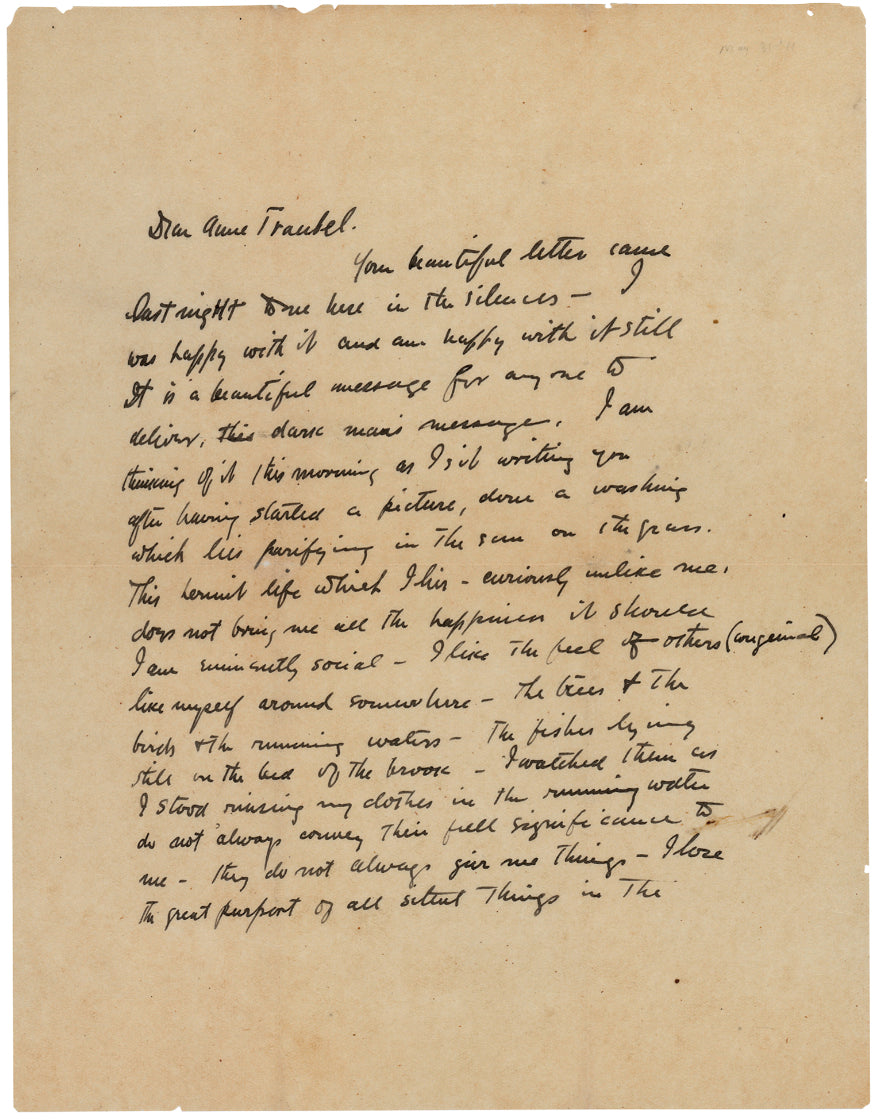 May 31 '11
Dear Anne Traubel.
Your beautiful letter came
last night to me here in the silences – I
was happy with it and am happy with it still
It is a beautiful message for any one to
deliver, this dark man's message. I am
thinking of it this morning as I sit writing you
after having started a picture, done a washing
which lies purifying in the sun on the grass.
This hermit life which I live – curiously unlike me,
does not bring me all the happiness it should
I am eminently social – I like the feel of others (congenial)
like myself around somewhere – The trees & the
birds & the running waters – The fishes lying
still on the bed of the brook – I watched them as
I stood rinsing my clothes in the running water
do not always convey their full significance to
me – they do not always give me things – I lose
the great purport of all silent things in the